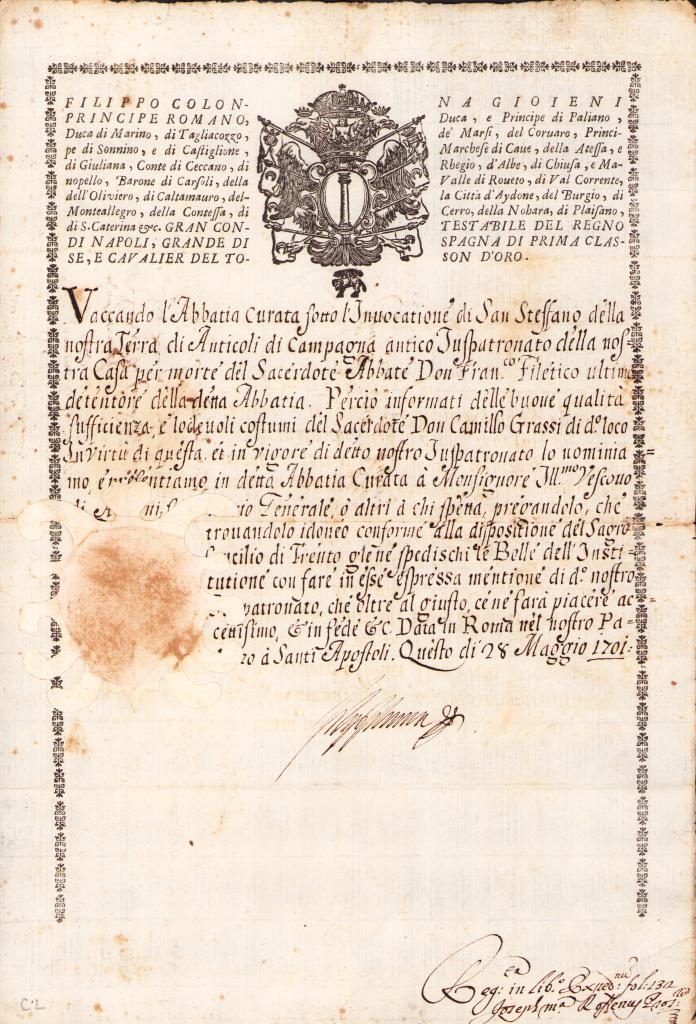 FILIPPO COLON-
NA GIOIENI
PRINCIPE ROMANO,
Duca, e Principe di Paliano,
Duca di Marino, di Tagliacozzo,
de' Marsi, del Coruaro, Princi-
pe di Sonnino, e di Castiglione,
Marchese di Caue, della Atessa, e
di Giuliana, Conte di Ceccano, di
Rhegio, d'Albe, di Chiusa, e Ma-
nopello, Barone di Carsoli, della
Valle di Roueto, di Val Corrente,
dell'Oliviero, di Caltamauro, del-
la Città d'Aydone, del Burgio, di
Monteallegro, della Contessa, di
Cerro, della Nohara, di Plaisano,
di S. Caterina &c. GRAN CON-
TESTABILE DEL REGNO
DI NAPOLI, GRANDE DI
SPAGNA DI PRIMA CLAS-
SE, E CAVALIER DEL TO-
SON D'ORO.
Vaccando l'Abbatia Curata sotto l'Inuocatione di San Steffano della
nostra Terra di Anticoli di Campagna antico Juspatronato della nos-
tra Casa per morte del Sacerdote Abbate Don Fran.co Filetico ultimo
detentore della detta Abbatia. Perciò informati delle buone qualità
sufficienza, e lodeuoli costumi del Sacerdote Don Camillo Grassi di d.o loco
In virtù di questa, et in vigore di detto nostro Juspatronato lo nominia
mo, e presentiamo in detta Abbatia Curata à Monsignore Ill.mo Vescouo
di Generale, ò altri à chi spetta, pregandolo, che
trouandolo idoneo conforme alla dispositione del Sagro
Concilio di Trento gle ne spedischi le Bolle dell'Insti-
tutione con fare in esse espressa mentione di d.o nostro
patronato, che oltre al giusto, ce ne farà piacere ac
cettissimo, & in fede &c. Data in Roma nel nostro Pa-
zo à Santi Apostoli. Questo dì 28 Maggio 1701.
Reg.ea in lib.o Exped.nu fol. 134
Joseph M.a